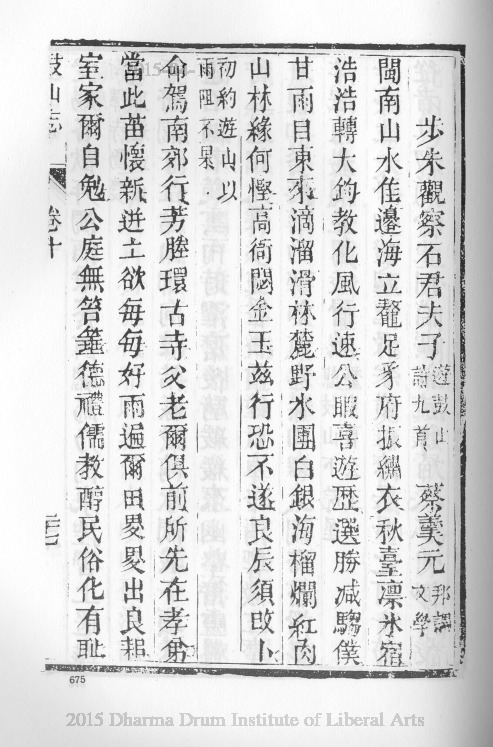 步朱觀察石君夫子遊鼓山詩九首 蔡羹元邦調文學
閩南山水佳邊海立鼇足牙府振繡衣秋臺凜氷宿
浩浩轉大鈞教化風行速公暇喜遊歷選勝减騶僕
甘雨目東來滴溜滑林麓野水團白銀海榴爛紅肉
山林緣何慳高衙閟金玉茲行恐不遂良辰須改卜
初約遊山以雨阻不果
命駕南郊行芳塍環古寺父老爾俱前所先在孝弟
當此苗懷新迸土欲每每好雨遍爾田畟畟出良耜
室家爾自勉公庭無笞箠德禮儒教醇民俗化有恥
鼓山志 卷十
675
2015 Dharma Drum Institute of Liberal Arts